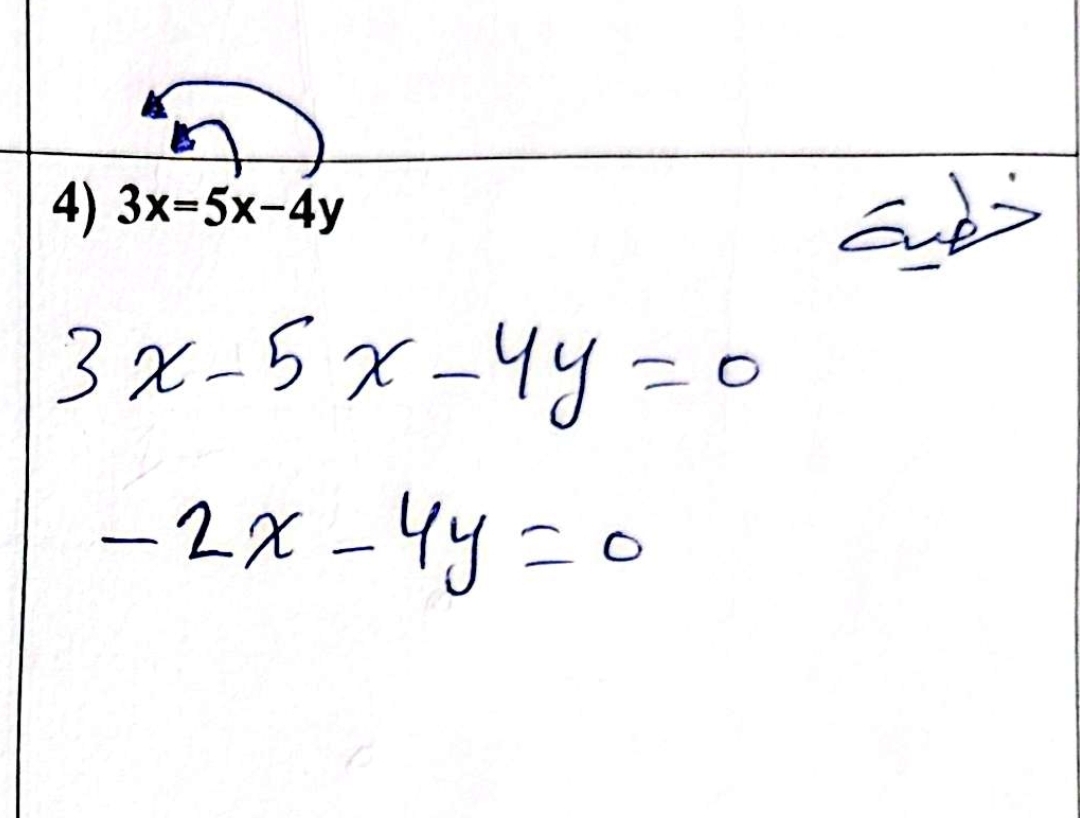 4) 3x=5x-4y
خطية
3x-5x-4y=0
-2x-4y=0